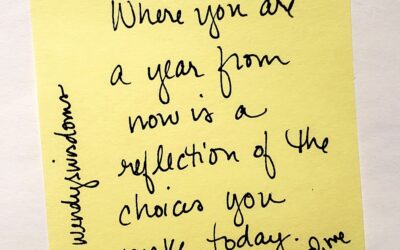 Where you are
a year from
now is a
reflection of the
choices you
make today.
@me
wendyswisdoms